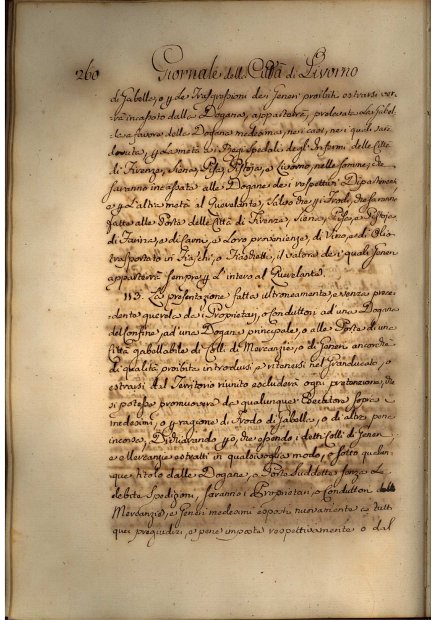 260 Giornale della Città di Livorno
di Gabelle, o p. le Trasgressioni dei Generi proibiti estrarsi ver-
rà incassato dalle Dogane, apparterrà, prelevata la Gabel-
la a favore delle Dogane medesime, nei casi, nei quali sarà
dovuta, p. la metà ai Regi Spedali degl'Infermi delle Città
di Firenze, Siena, Pisa, Pistoja, e Livorno, nelle somme, che
saranno incassate alle Dogane dei respettivi Dipartimenti
e p. l'altra metà al Querelante, salvo che p. i Frodi, che saranno
fatte alle Porte delle Città di Firenze, Siena, Pisa, e Pistoja,
di Farina, e di Carni, e Loro provenienze, di Vino, e di Olio
trasportato in Fiaschi, o Fiaschetti, il valore dei quali Generi
apparterrà sempre p. l'intero al Querelante.
113. La presentazione fatta ultroneamente, e senza prece-
denta querela dai Proprietarj, o Conduttori ad una Dogana
del Confine, ad una Dogana principale, o alle Porte di una
Città gabellabile di Colli di Mercanzie, o di Generi ancorchè
di qualità proibita introdursi, e ritenersi nel Granducato, o
estrarsi dal Territorio riunito escluderà ogni pretenzione, che
si potesse promuovere da qualunque Esecutore sopra i
medesimi, o p. ragione di Frodo di Gabelle, o di altre pene
incorse, Dichiarando p.ò, che essendo i detti Colli di Generi
e Merzanzie estratti in qualsivoglia modo, o sotto qualun-
que titolo dalle Dogane, o Porte suddette senza le
debite Spedizioni, saranno i Proprietarj, o Conduttori delle
Mercanzie, e Generi medesimi esposti nuovamente a tutti
quei pregiudizi, e pene imposte respettivamente o dal